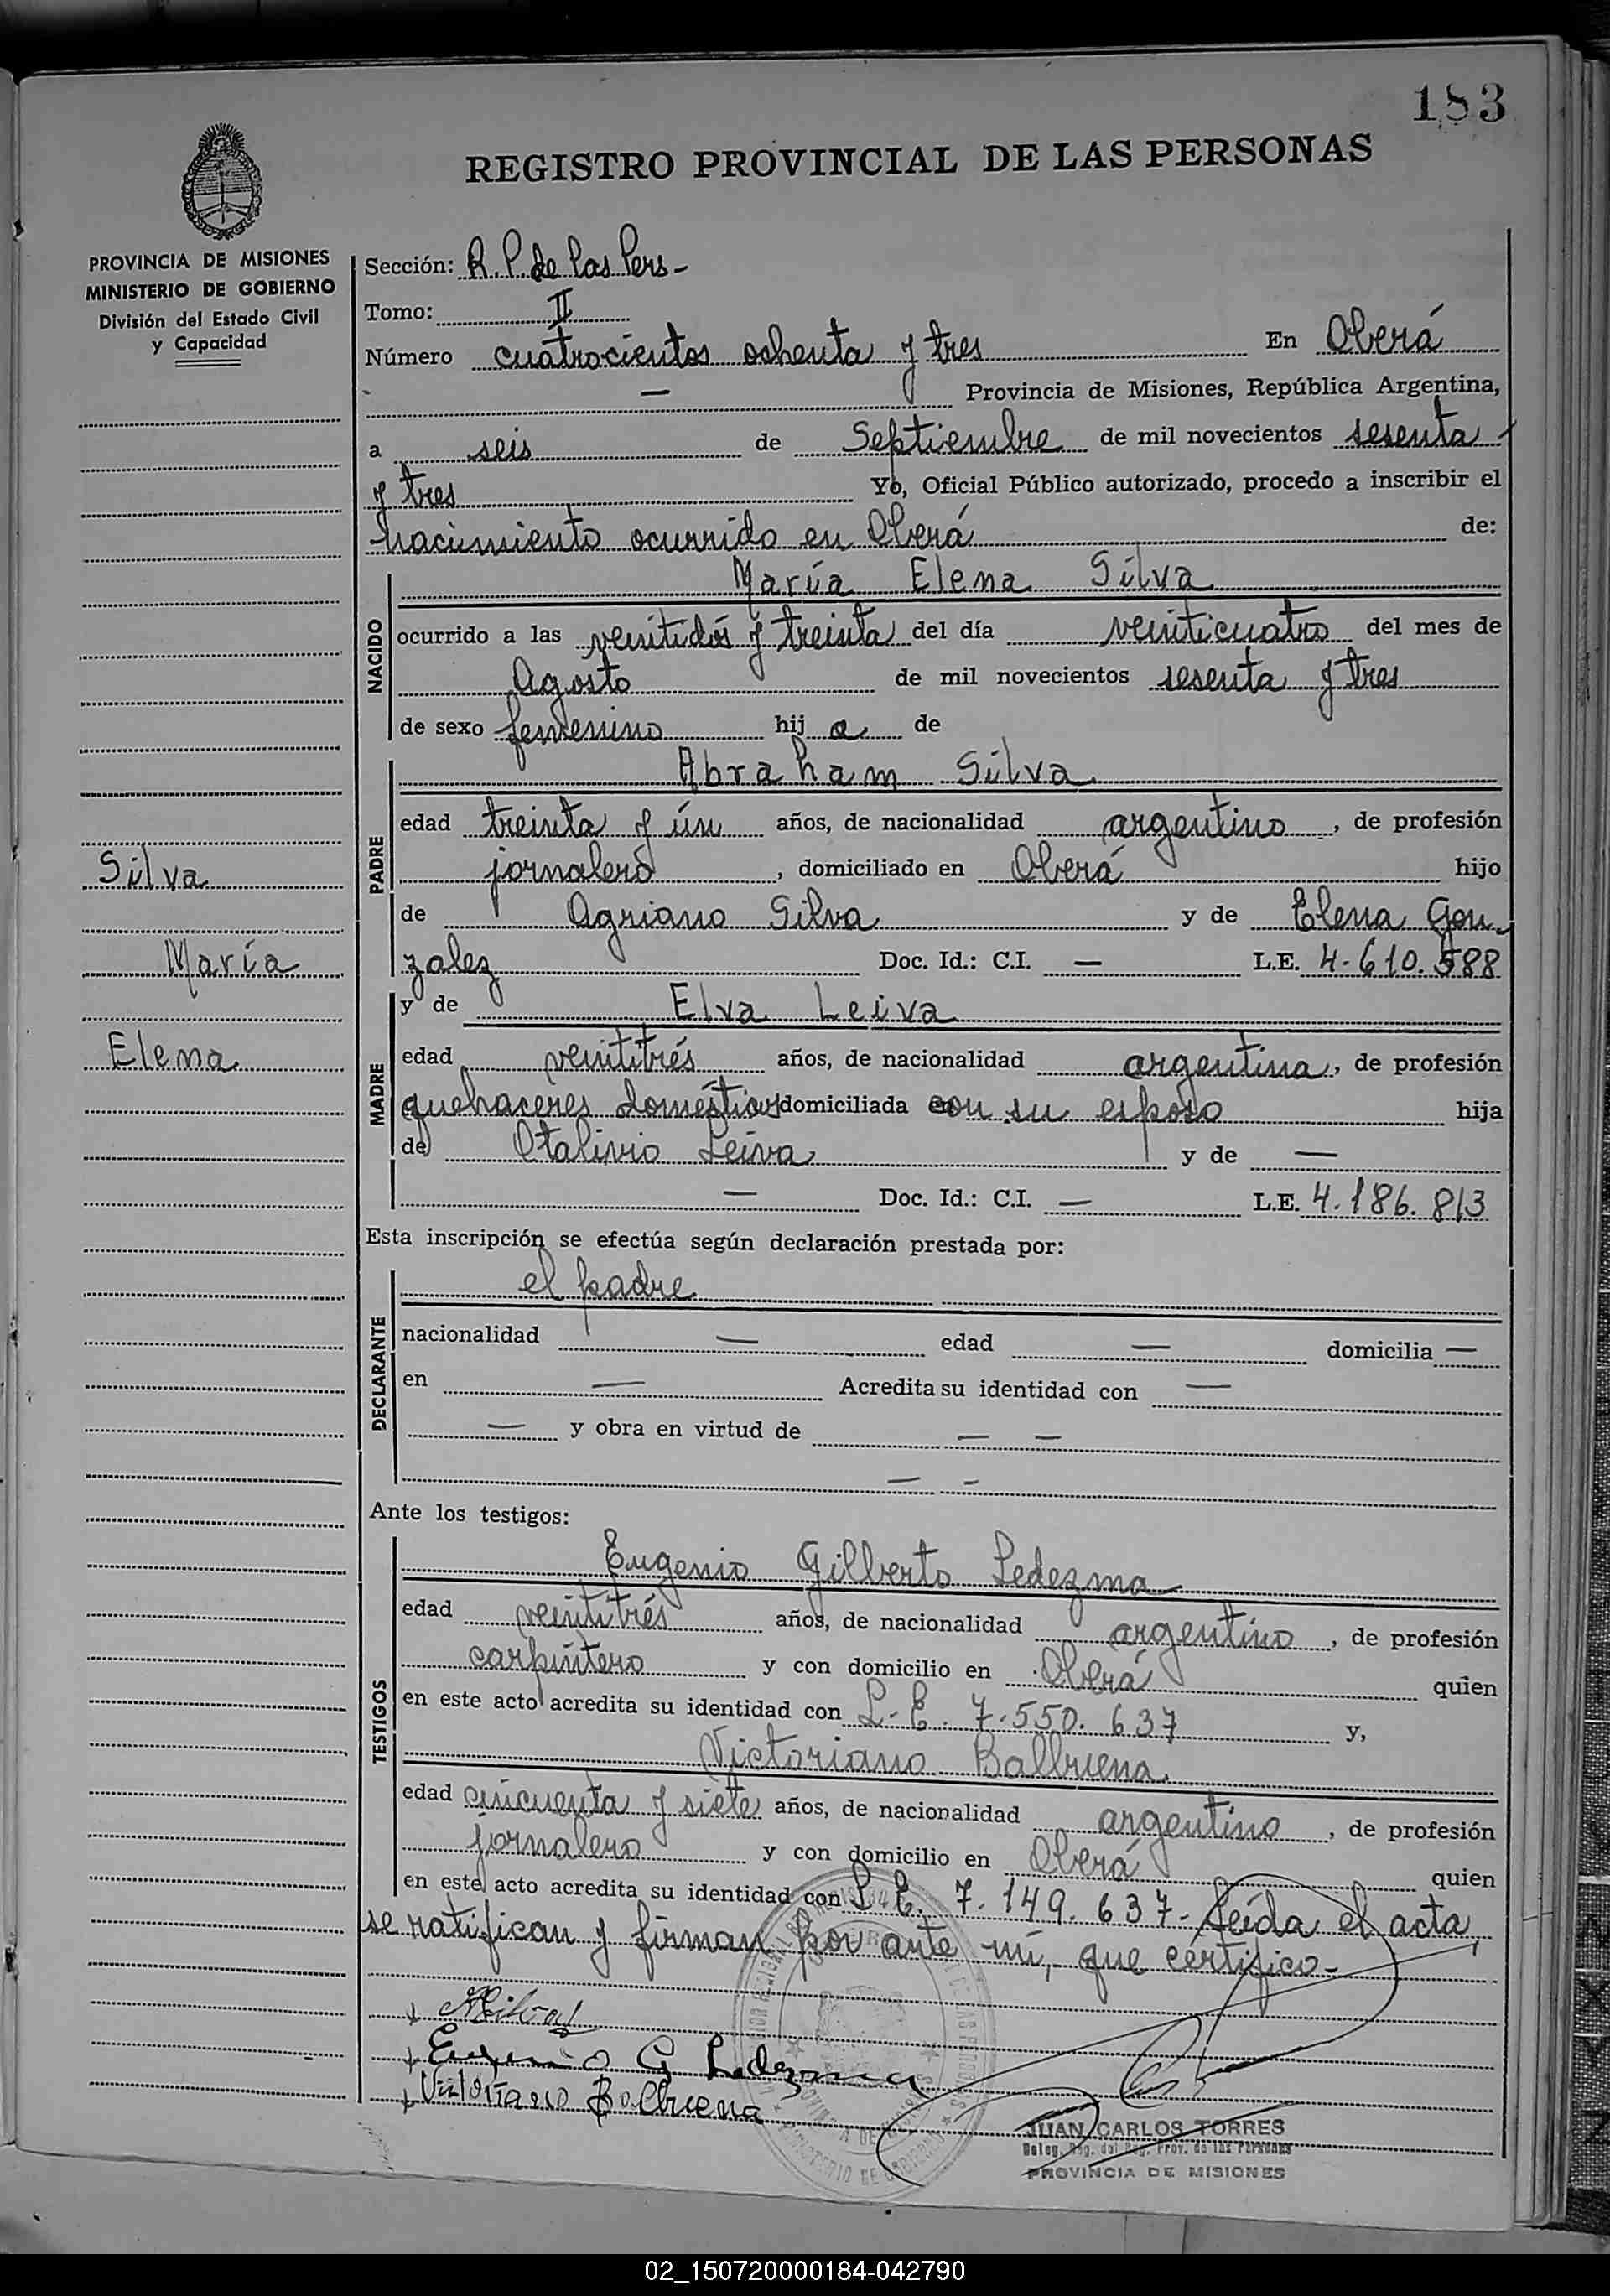 183
REGISTRO PROVINCIAL DE LAS PERSONAS
PROVINCIA DE MISIONES
MINISTERIO DE GOBIERNO
División del Estado Civil
y Capacidad
Silva
María
Elena
Sección: R. P. de las Pers-
Tomo: II
Número cuatrocientos ochenta y tres En Oberá
— Provincia de Misiones, República Argentina,
a seis de Septiembre de mil novecientos sesenta
y tres Yo, Oficial Público autorizado, procedo a inscribir el
nacimiento ocurrido en Oberá de:
NACIDO
María Elena Silva
ocurrido a las veintidós y treinta del día veinticuatro del mes de
Agosto de mil novecientos sesenta y tres
de sexo femenino hij a de
PADRE
Abraham Silva
edad treinta y ún años, de nacionalidad argentino, de profesión
jornalero, domiciliado en Oberá hijo
de Agriano Silva y de Elena Gon-
zalez Doc. Id.: C.I. — L.E. 4-610.588
MADRE
y de Elva Leiva
edad veintitrés años, de nacionalidad argentina, de profesión
quehaceres domésticos domiciliada con su esposo hija
de Otalivio Leiva y de —
— Doc. Id.: C.I. — L.E. 4.186.813
Esta inscripción se efectúa según declaración prestada por:
DECLARANTE
el padre
nacionalidad — edad — domicilia —
en — Acredita su identidad con —
— y obra en virtud de — —
— -
Ante los testigos:
TESTIGOS
Eugenio Gilberto Ledezma
edad veintitrés años, de nacionalidad argentino, de profesión
carpintero y con domicilio en Oberá quien
en este acto acredita su identidad con L.E. 7.550.637 y,
Victoriano Balbuena
edad cincuenta y siete años, de nacionalidad argentino, de profesión
jornalero y con domicilio en Oberá quien
en este acto acredita su identidad con L.E. 7.149.637- Leída el acta,
se ratifican y firman por ante mí, que certifico-
Eugenio G Ledezma
Victoriano Balbuena
JUAN CARLOS TORRES
Deleg. Reg. del Reg. Prov. de las Personas
PROVINCIA DE MISIONES
02_150720000184-042790